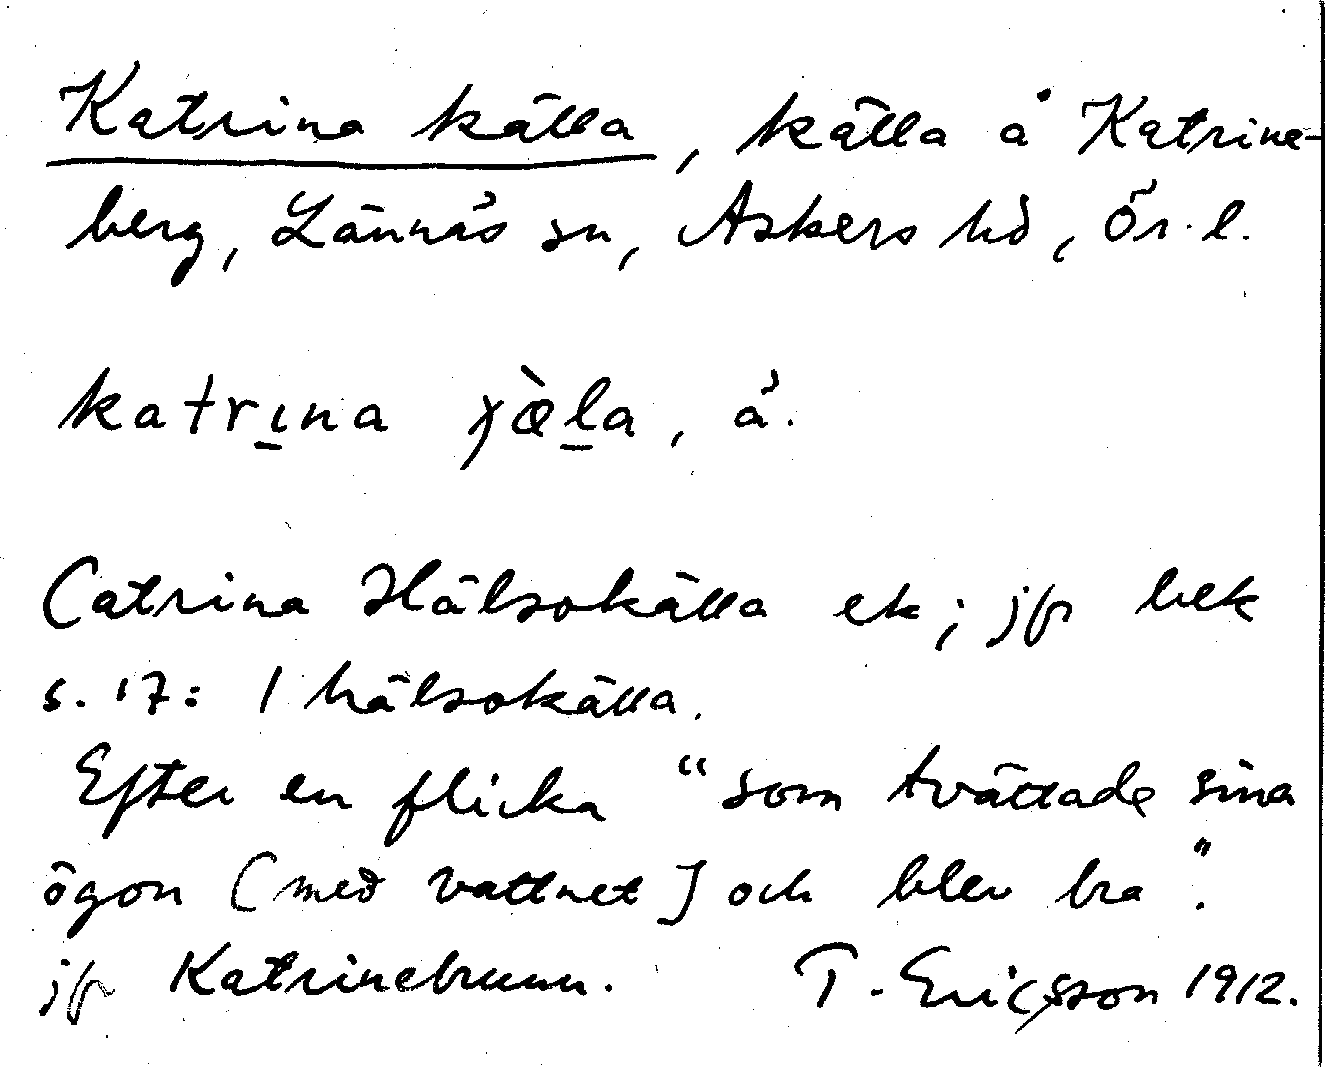 Katrina källa, källa å Katrine-
berg, Lännäs sn, Askers hd, Ör. l.
katrına χæ̀la, å.
Catrina Hälsokälla ek; jfr bek
s. 17: 1 hälsokälla.
Efter en flicka "som tvättade sina
ögon [med vattnet] och blev bra".
jfr Katrinebrunn. T. Ericsson 1912.